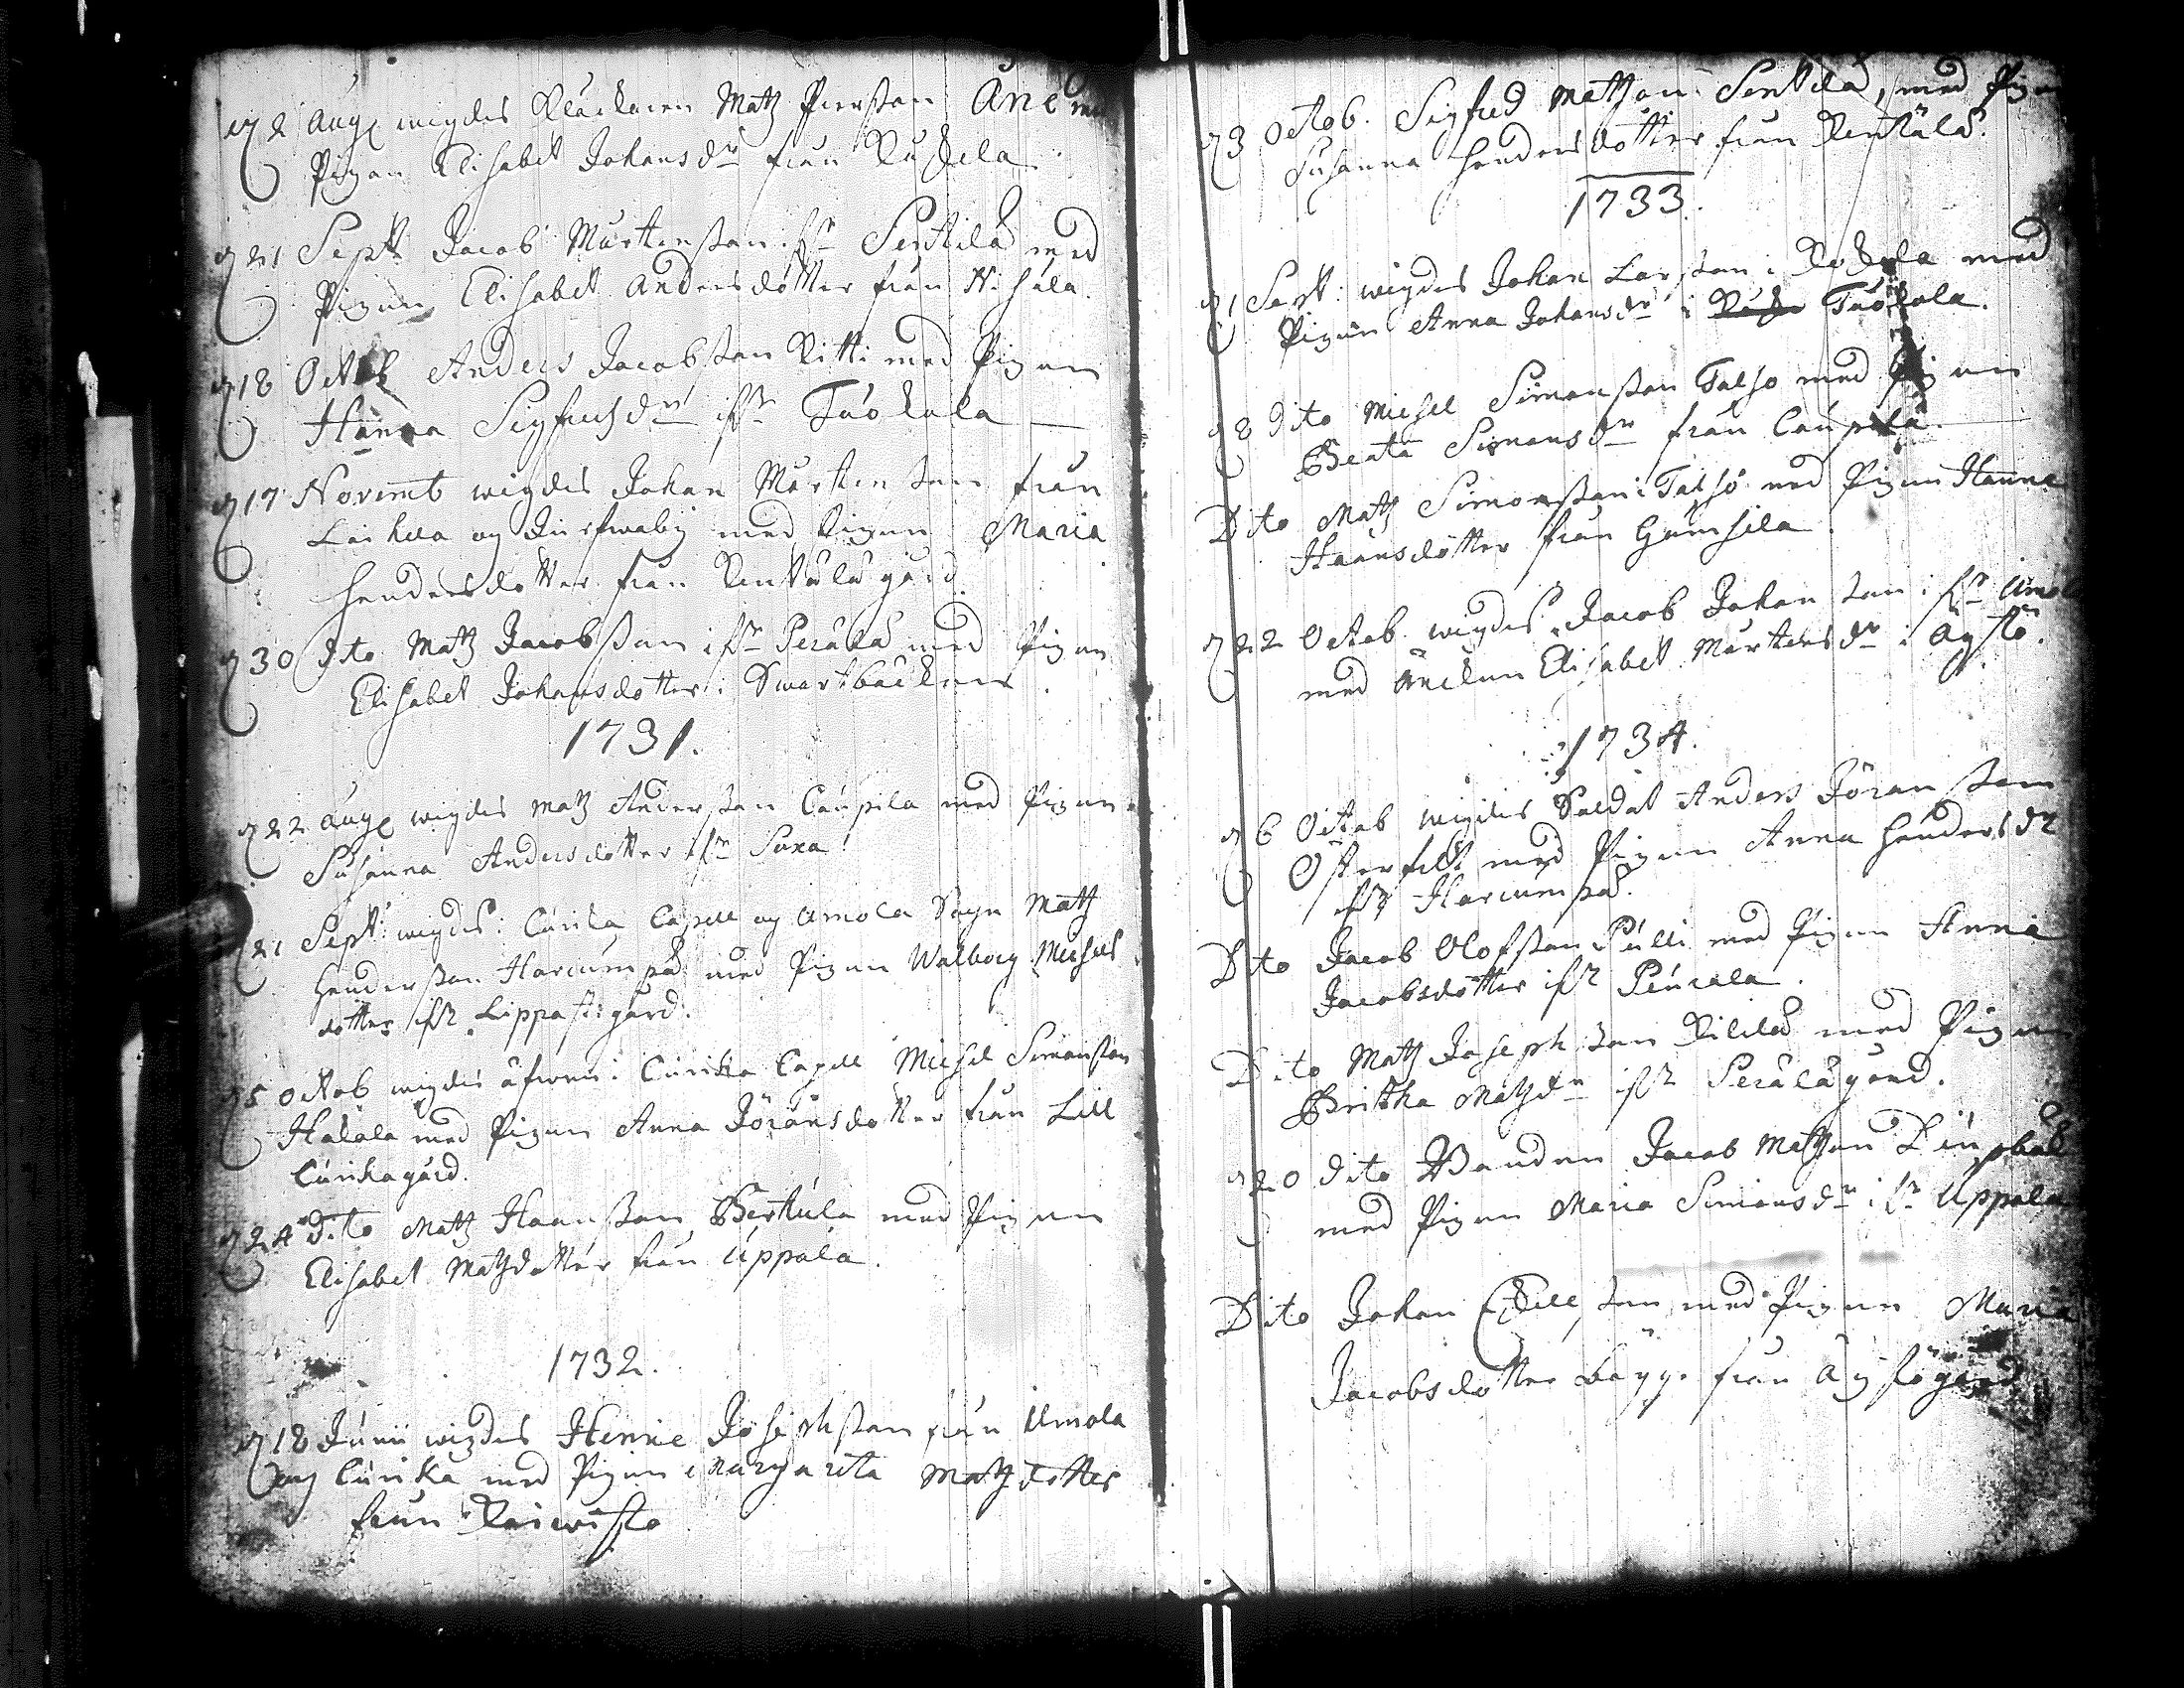 d 2 Aug wigdes Klåckaren Matz Pierssan
Pigan Elisabet Johansdr från Kuskela
d 21 Sept Jacob Mårtenssan ifr Serkilä med
Pigan Elisabet Andersdotter från Nihala
d 18 Octob Anders Jacobssan Kitti med Pigan
Hanna Sigfredsdr ifr Tuokola
d 17 Novemb wigdes Johan Mårtenssan från
Laihela og med Pigan Maria
Hendersdotter från Kenkälä gård
d 30 Dito Matz Jacobssan ifr Perälä med Pigan
Elisabet Johansdotter i Swartbäcken
1731.
d 22 Aug wigdes Matz Anderssan Caupila med Pigan
Susanna Andersdotter ifr Saxa
d 21 Sept wigdes i Caurika Capell og Umola Sogn Matz
Henderssan Harcumpä med Pigan Walborg Michels
dotter ifr Lippasti gård.
d 5 Octob wigdes äfwen i Caurika Capell Michel Simonssan
Hakala med Pigan Anna Jöransdotter från Lill
Caurika gård.
d 24 Dito Matz Haanssan Bertula med Pigan
Elisabet Matzdotter från Uppala.
1732.
d 18 Junii wigdes Henric Josephssan från Umola
og Caurika med Pigan Margareta Matzdotter
från
d 3 Octob. Sigfred Matssan Serkilä, med Pigan
Susanna Hendersdotter från Kenkälä.
1733.
d 1 Sept: wigdes Johan Larssan i Kokela med
Pigan Anna Johansdr i Tuokola.
d 8 Dito Michel Simonssan Talso med Pigan
Beata Simonsdr från Caupila.
Dito Matz Simonssan i Talso med Pigan Hanna
Haansdotter från Gamsila.
d 22 Octob. wigdes Jacob Johanssan ifr Umola
med Änckan Elisabet Mårtensdr i Agsio.
1734.
d 6 Octob wigdes Soldat Anders Jöranssan
Österfelt med Pigan Anna Hendersdr
ifr Harcumpä.
Dito Jacob Olofssan Pulli med Pigan Anna
Jacobsdotter ifr Peurala.
Dito Matz Josephssan Kililä med Pigan
Britha Matzdr ifr Perälägård.
d 20 Dito Bonden Jacob Matssan
med Pigan Maria Simonsdr ifr Uppala
Dito Johan med Pigan Maria
Jacobsdotter bägge från Agsiogård